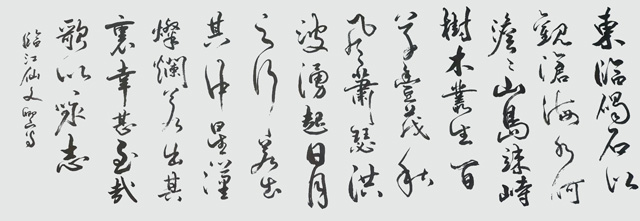 東臨碣石以
觀滄海水何
澹〻山島竦峙
樹木叢生百
草豐茂秋
風蕭瑟洪
波湧起日月
之行若出
其中星漢
燦爛若出其
裏幸甚至哉
歌以詠志
臨江仙文